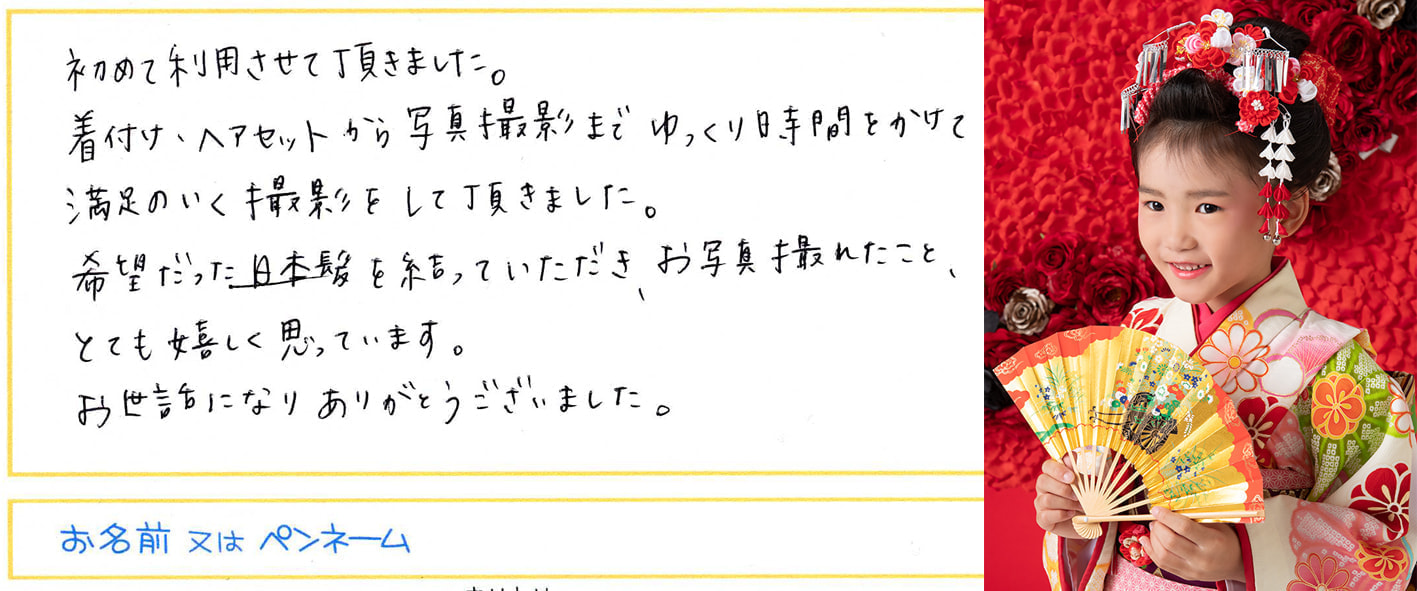 初めて利用させて頂きました。
着付け、ヘアセットから写真撮影までゆっくり時間をかけて
満足のいく撮影をして頂きました。
希望だった日本髪を結っていただき、お写真撮れたこと、
とても嬉しく思っています。
お世話になりありがとうございました。
お名前 又は ペンネーム